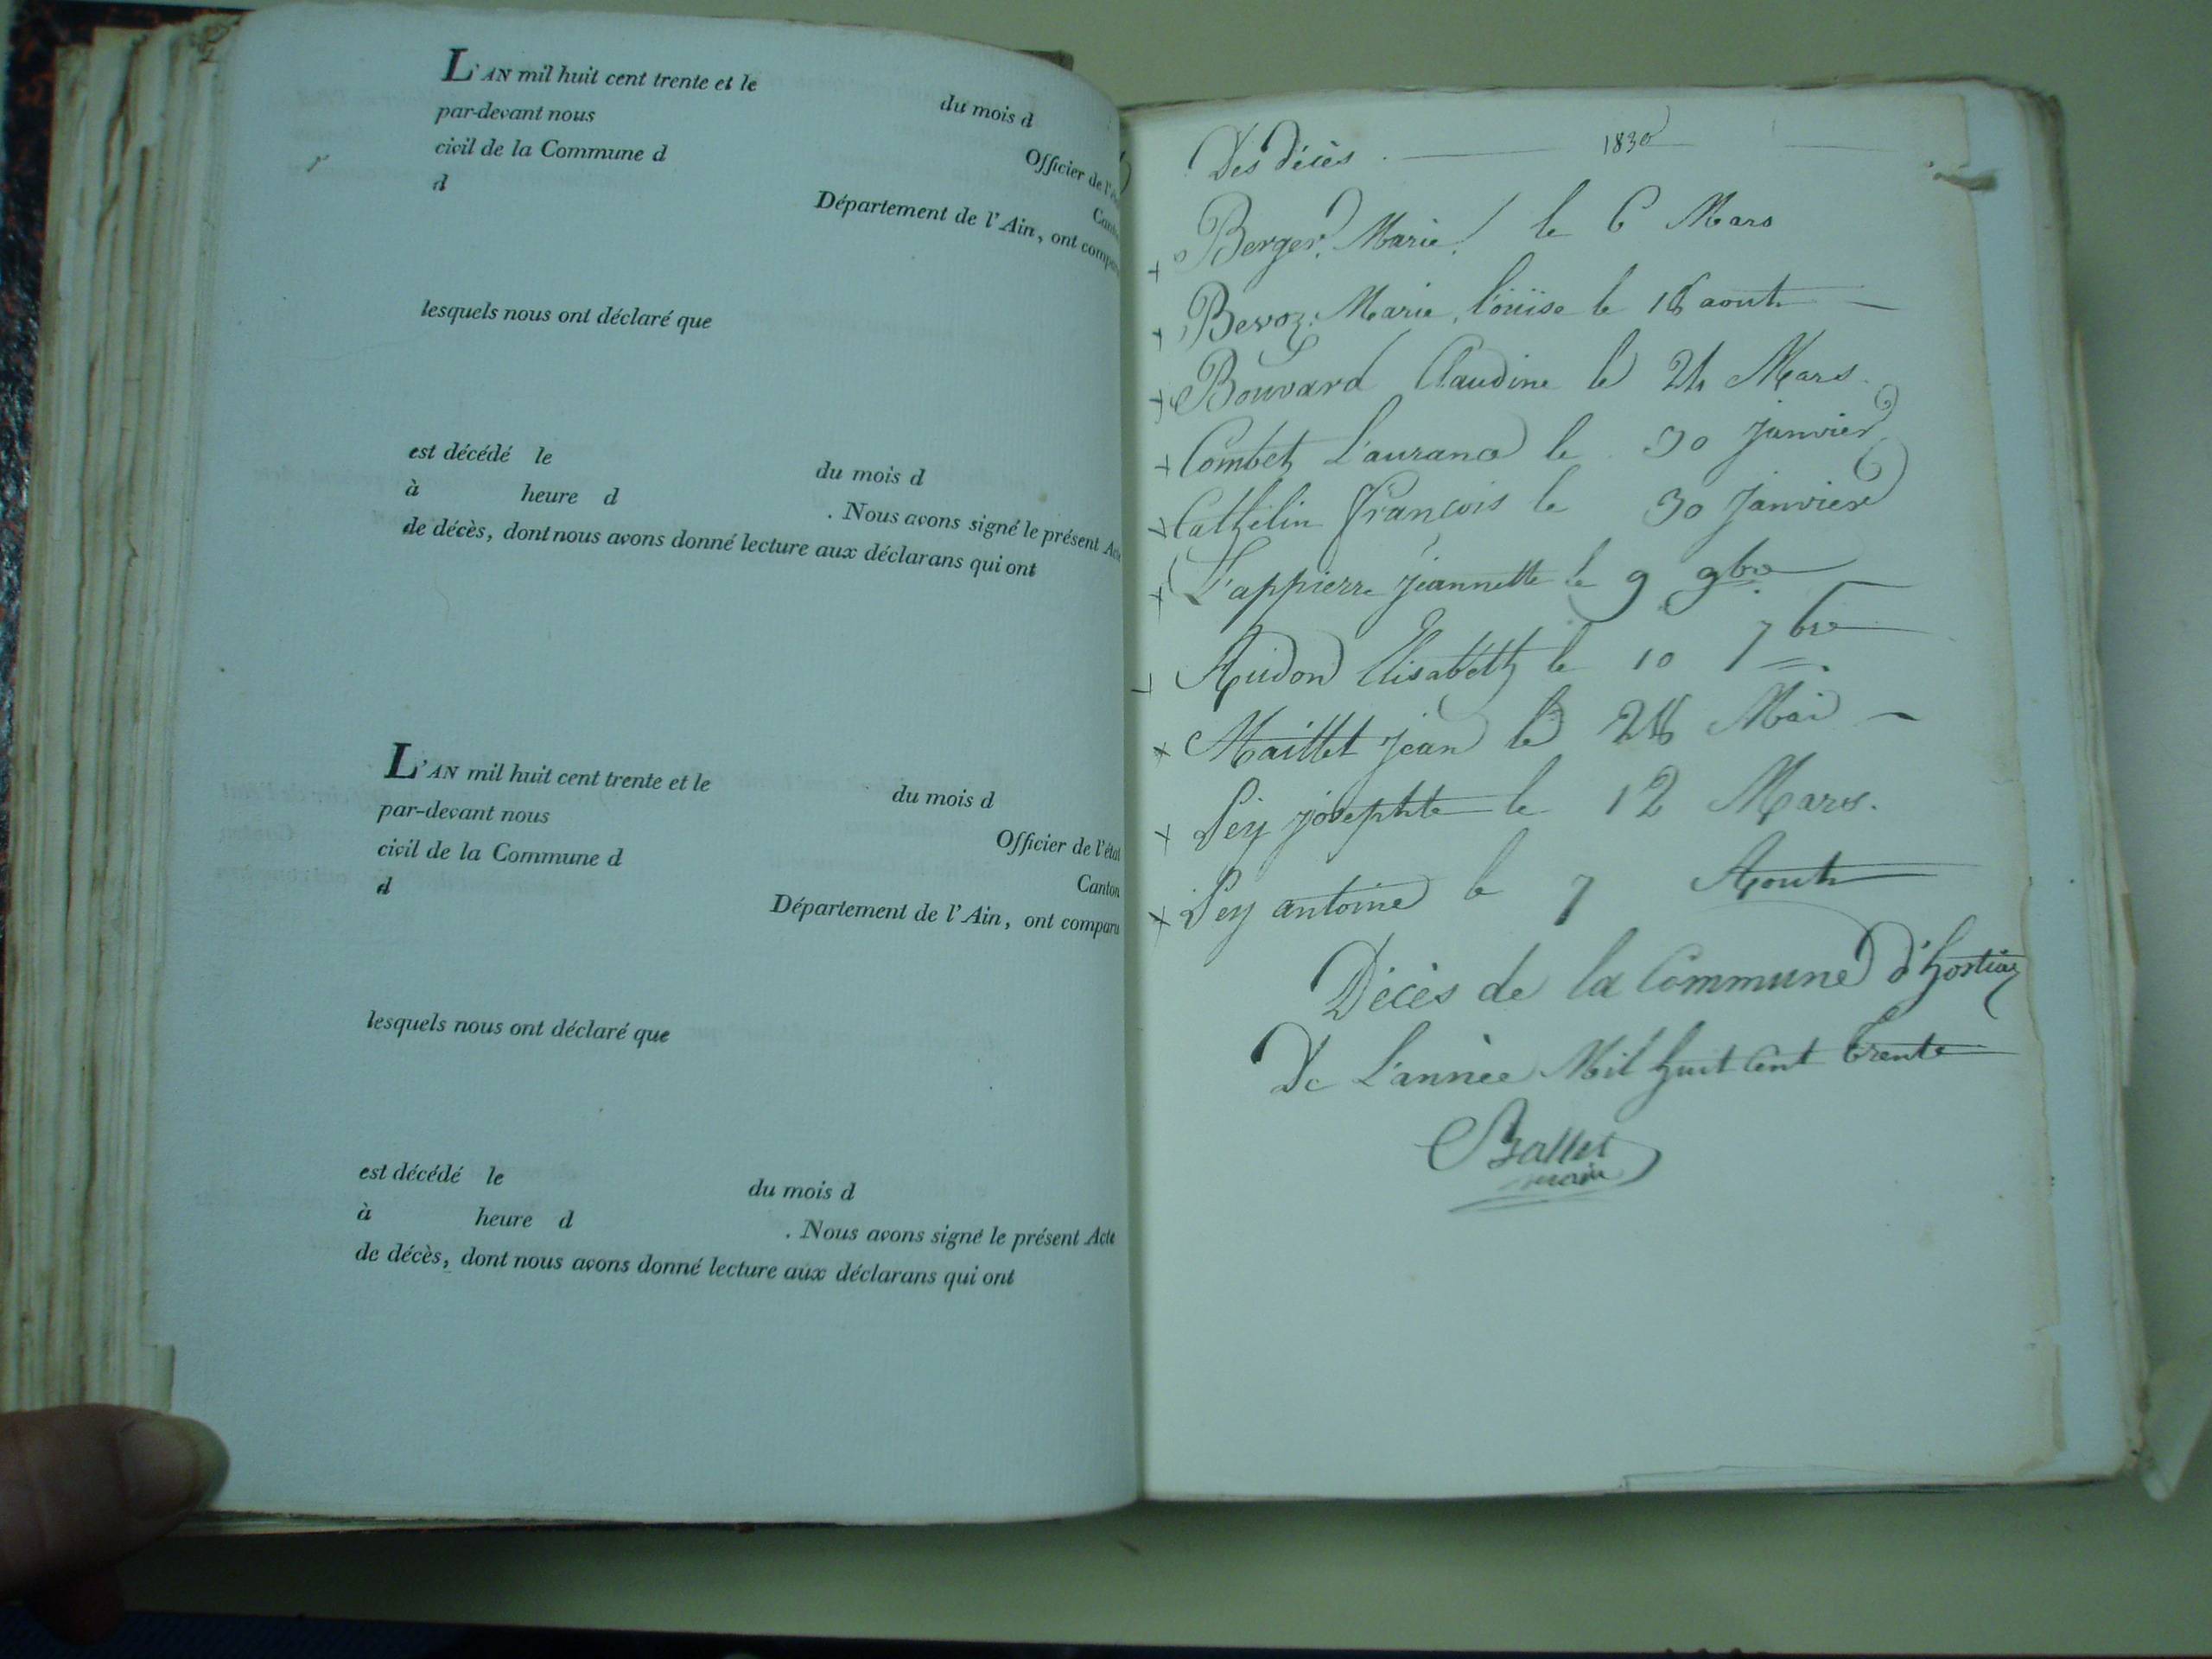 L'AN mil huit cent trente et le du mois d
par-devant nous Officier de l'é
civil de la Commune d Can
d Département de l'Ain, ont compa
lesquels nous ont déclaré que
est décédé le du mois d
à heure d . Nous avons signé le présent Acte
de décès, dont nous avons donné lecture aux déclarans qui ont
L'AN mil huit cent trente et le du mois d
par-devant nous Officier de l'état
civil de la Commune d Canton
d Département de l'Ain, ont comparu
lesquels nous ont déclaré que
est décédé le du mois d
à heure d . Nous avons signé le présent Acte
de décès, dont nous avons donné lecture aux déclarans qui ont
Des décès 1830
Berger Marie le 6 Mars
Bevoz Marie Louïse le 16 aout
Bouvard Claudine le 24 Mars
Combet Laurance le 30 janvier
Cathelin François le 30 janvier
Lappierre jeannette le 9 9bre
Elisabeth le 10 7bre
Maillet jean le Mai
josephte le 12 Mars.
antoine le 7 Aout
Décès de la Commune d'hostiaz
De L'année Mil huit Cent trente
Ballet
maire